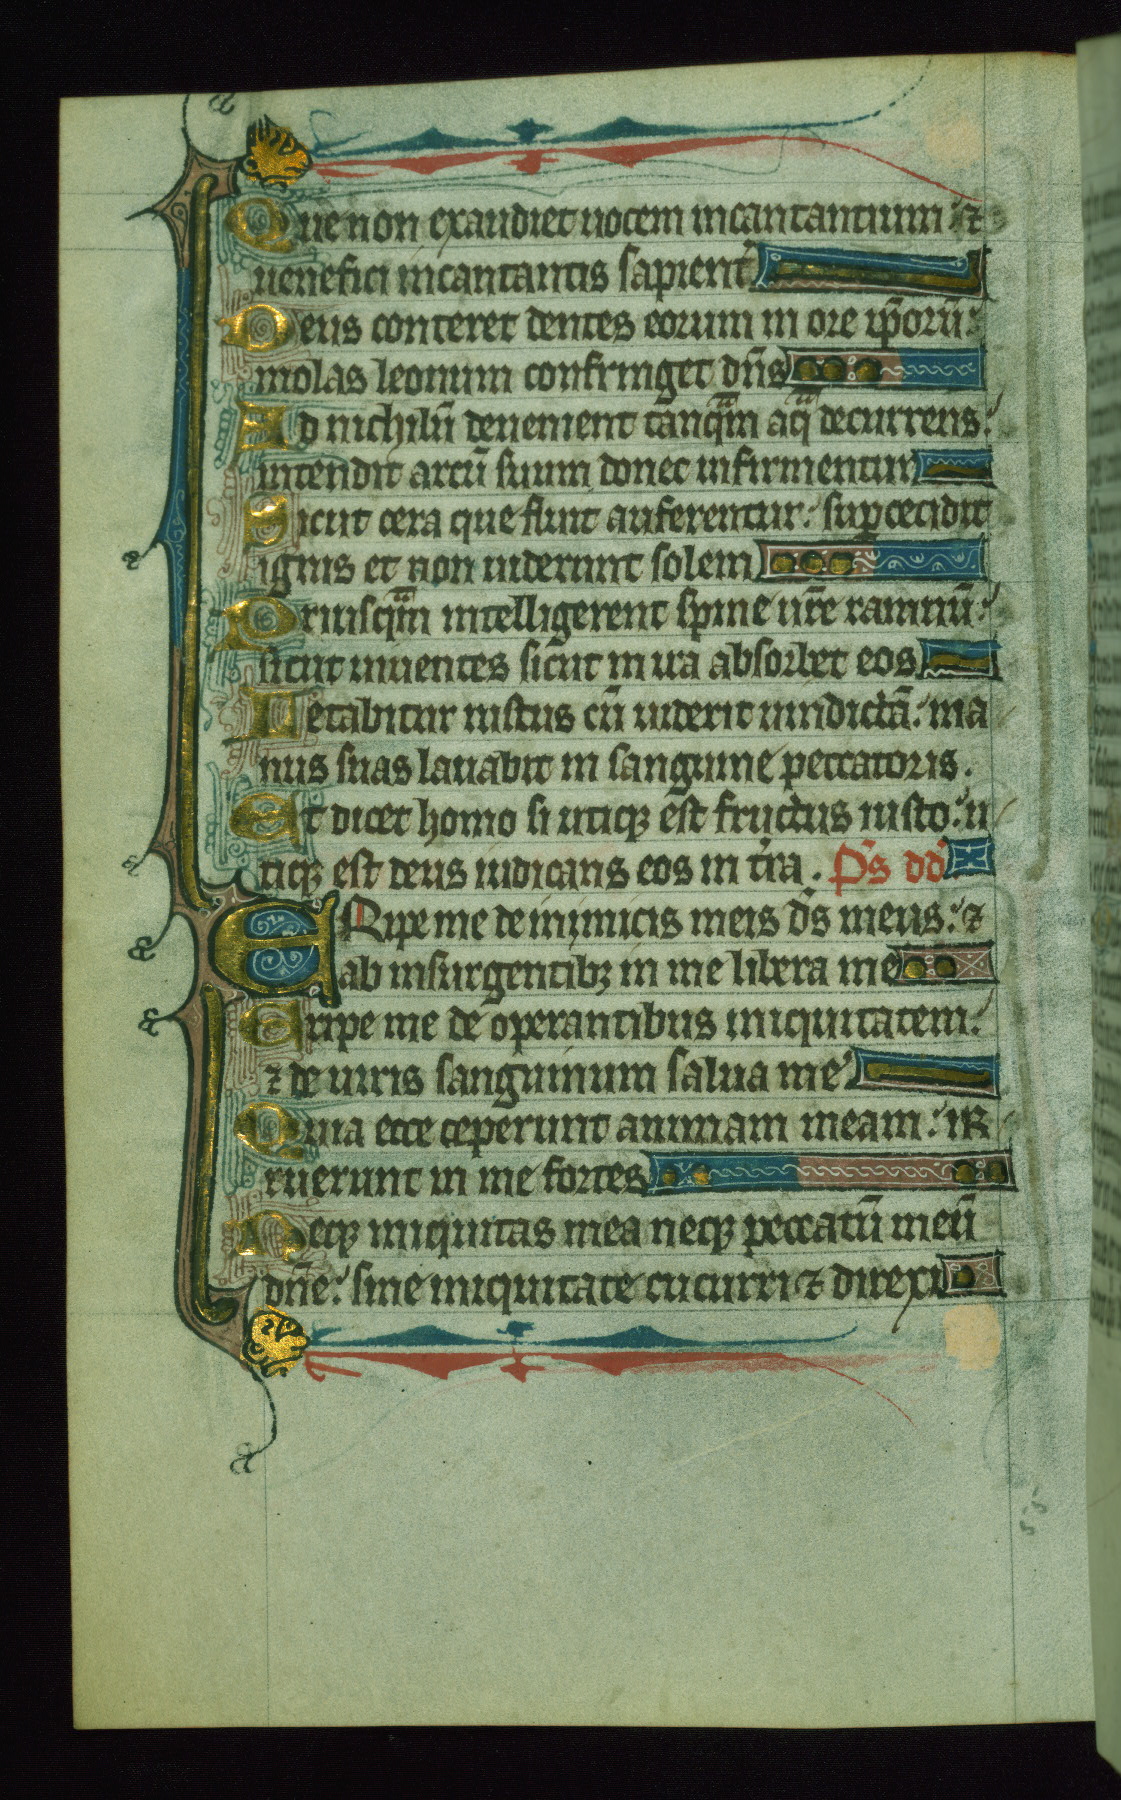 Que non exaudiet uocem incantantium ⁊
uenefici incantantis sapient̉
Deus conteret dentes eorum in ore ip̄orū:
molas leonum confringet dn̄s
Ad nichilū deuenient tanq̄m aq̄ decurrens:
intendit arcū suum donec infirmentur
Sicut cera que fluit auferentur: suꝑcecidit
ignis et non uiderunt solem
Priusq̄m intelligerent spine ur̄e ramnū:
sicut uiuentes sicut in ira absorbet eos
Letabitur iustus cū uiderit uindictā: ma
nus suas lauabit in sanguine peccatoris.
Et dicet homo si utiqꝫ est fructus iusto: u
tiqꝫ est deus iudicans eos in t̉ra. Ps̄ dd̄
ERipe me de inimicis meis ds̄ meus: ⁊
ab insurgentibꝫ in me libera me
Eripe me de operantibus iniquitatem:
⁊ de uiris sanguinum salua me
Quia ecce ceperunt animam meam: ir
ruerunt in me fortes
Neqꝫ iniquitas mea neqꝫ peccatū meū
dn̄e: sine iniquitate cucurri ⁊ direxi
55